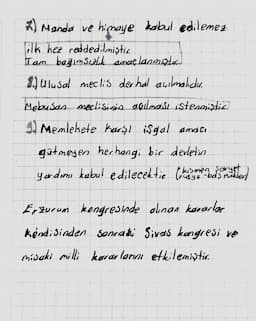 7.) Manda ve himaye kabul edilemez
ilk kez reddedilmiştir
Tam bağımsızlık amaçlanmıştır
8.) Ulusal meclis derhal açılmalıdır.
Mebusan meclisinin açılması istenmiştir
9.) Memlekete karşı işgal amacı
gütmeyen herhangi bir devletin
yardımı kabul edilecektir (kısmen
Erzurum kongresinde alınan kararlar
kendisinden sonraki Sivas kongresi ve
misaki milli kararlarını etkilemiştir.